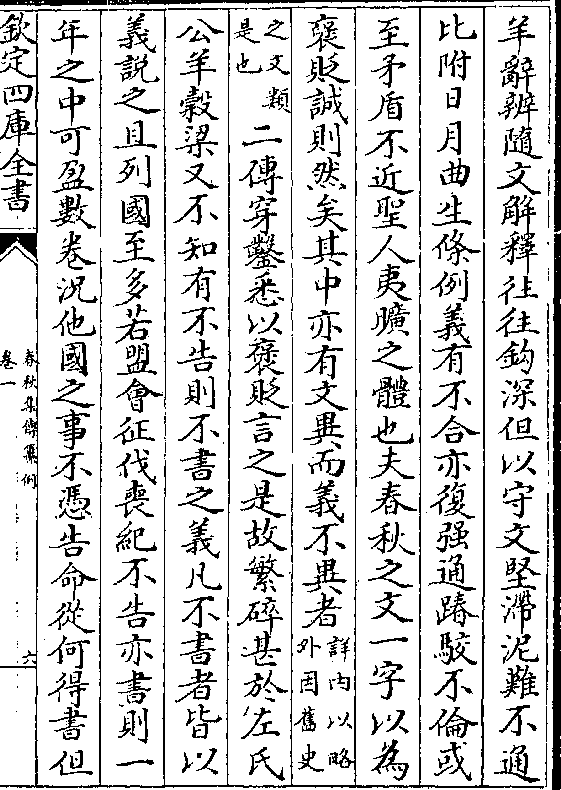 羊辭辨隨文解釋往往鈎深但以守文堅滯泥難不通
比附日月曲生條例義有不合亦復强通踳駁不倫或
至矛盾不近聖人夷曠之體也夫春秋之文一字以為
褒貶誠則然矣其中亦有文異而義不異者詳內以略外因舊史
之文類是也二傳穿鑿悉以褒貶言之是故繁碎甚於左氏
公羊穀梁又不知有不告則不書之義凡不書者皆以
義說之且列國至多若盟會征伐喪紀不告亦書則一
年之中可盈數卷況他國之事不憑告命從何得書但
欽定四庫全書
春秋集傳纂例
卷一
六